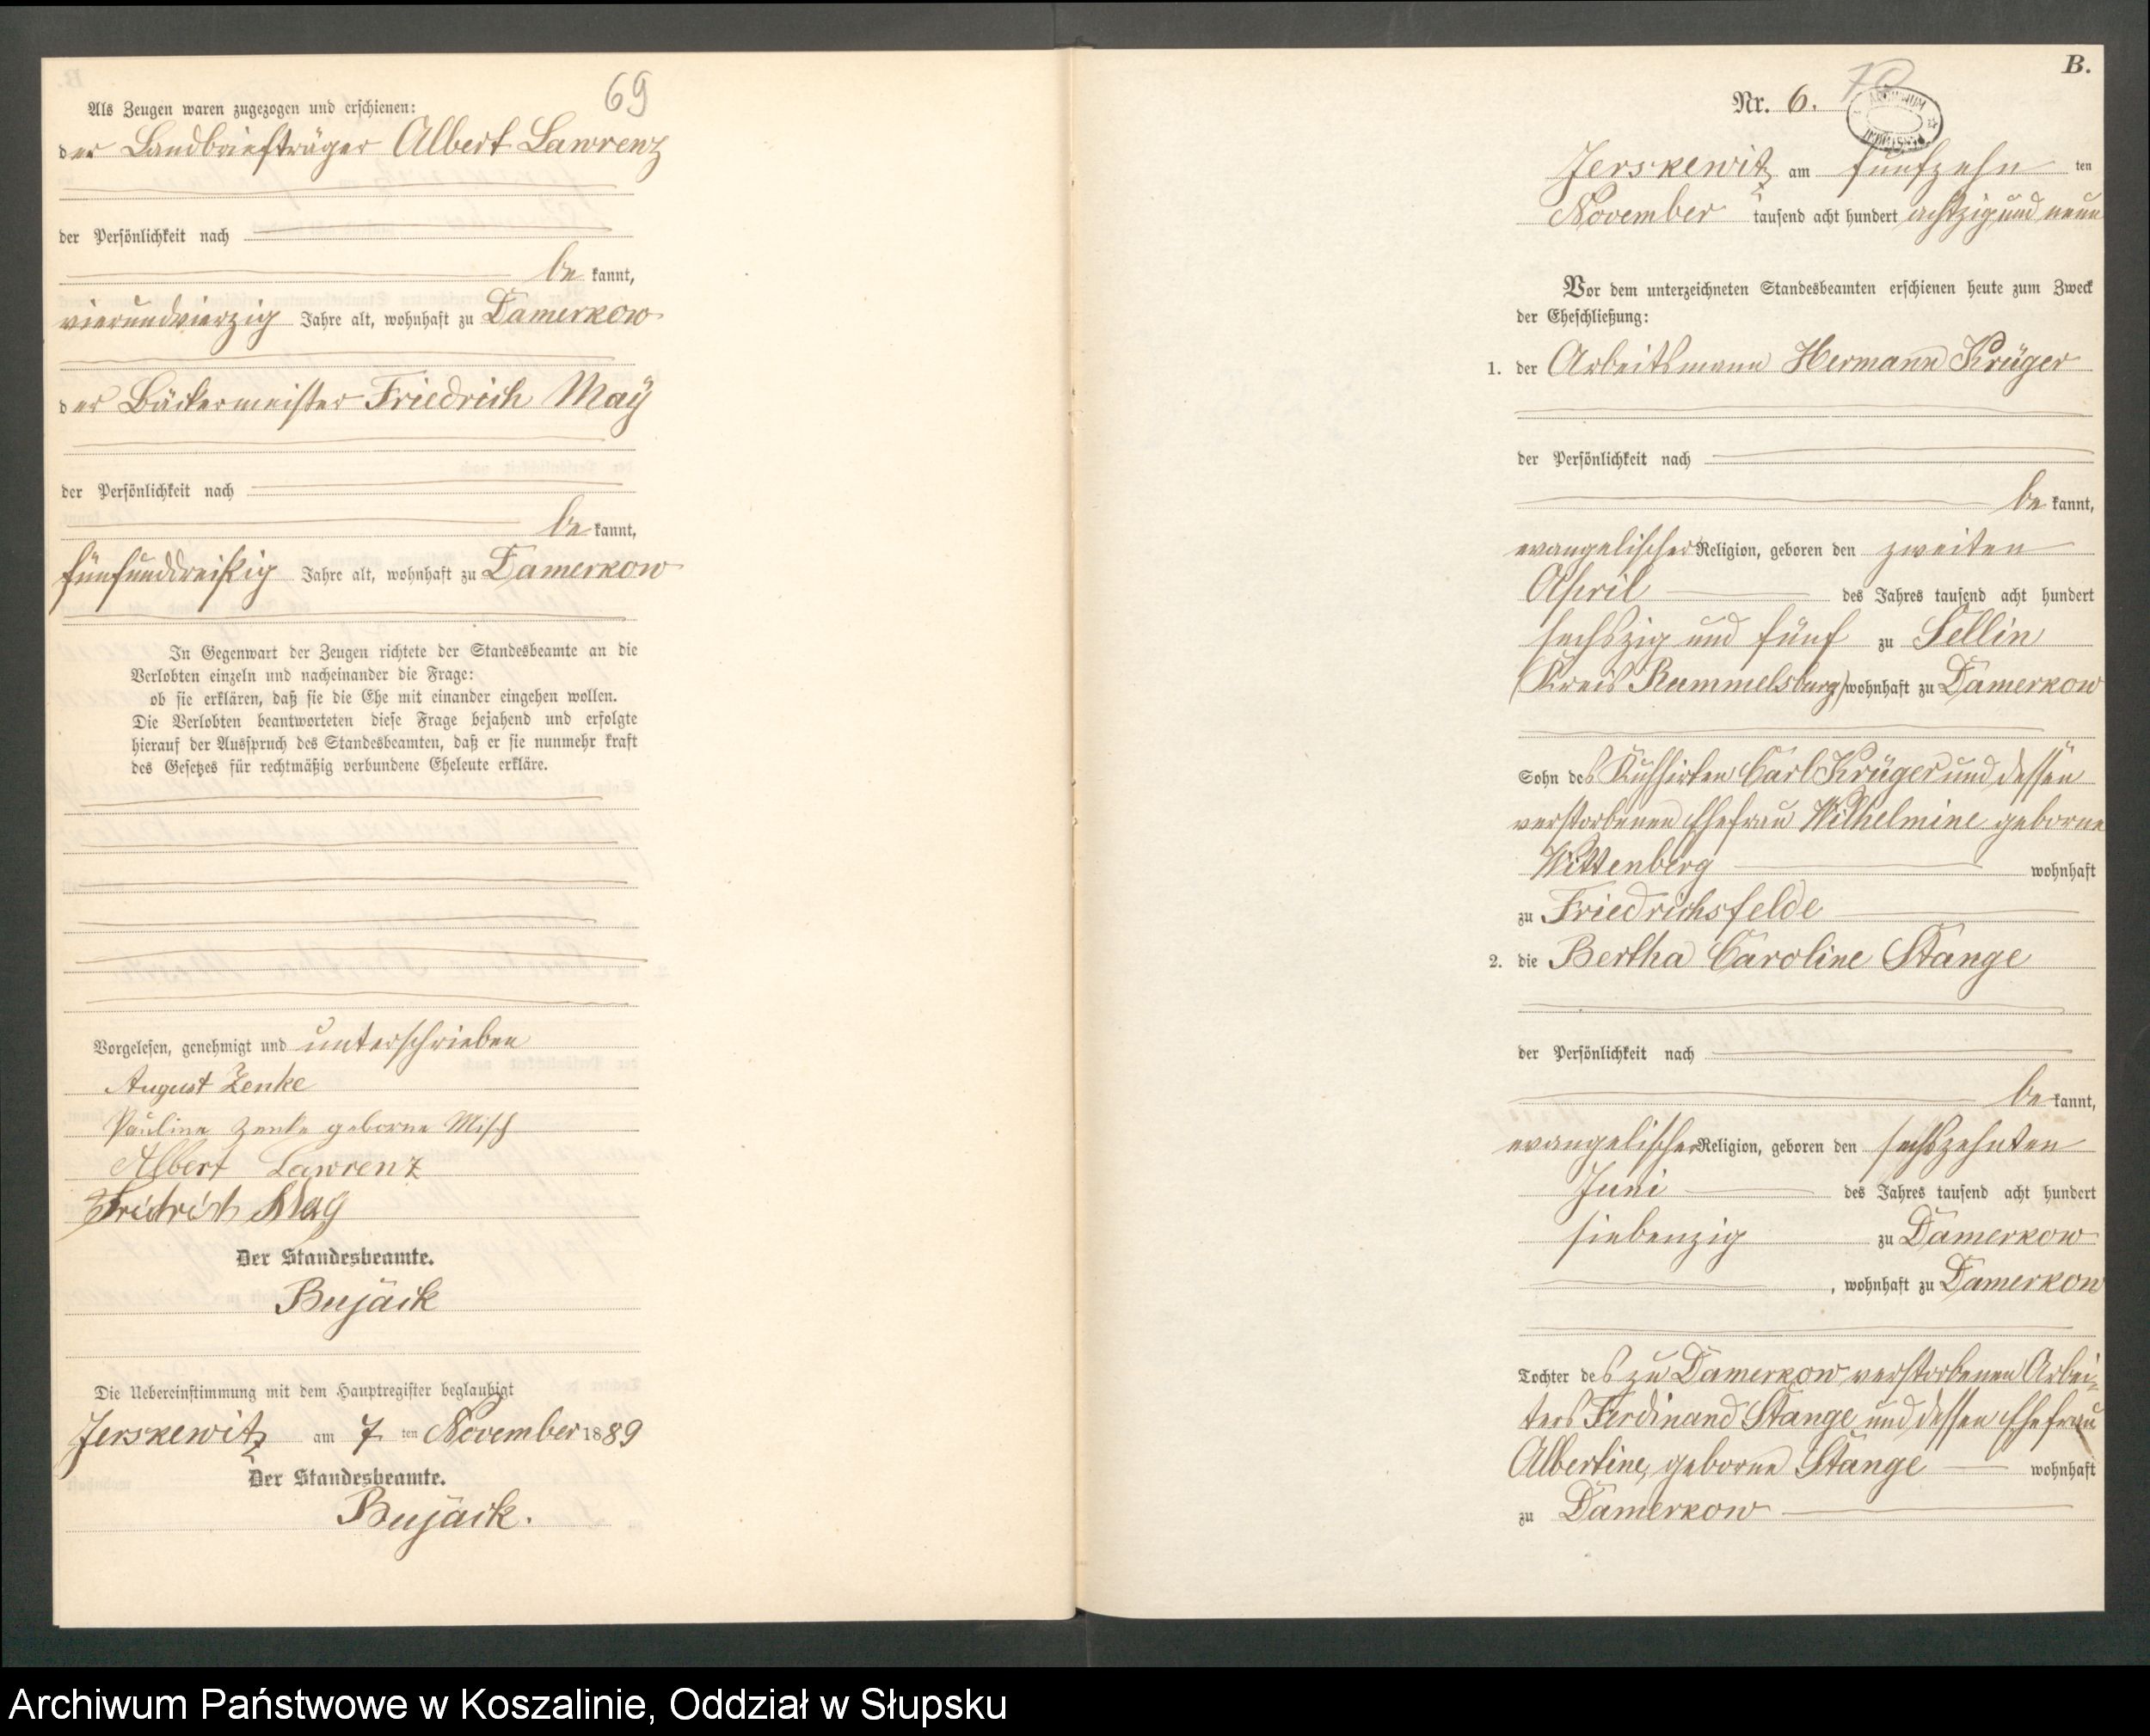 69
Als Zeugen waren zugezogen und erschienen:
der Landbriefträger Albert Lawrenz
der Persönlichkeit nach
be kannt,
vierundvierzig Jahre alt, wohnhaft zu Damerkow
der Bäckermeister Friedrich Maÿ
der Persönlichkeit nach
be kannt,
fünfunddreißig Jahre alt, wohnhaft zu Damerkow
In Gegenwart der Zeugen richtete der Standesbeamte an die
Verlobten einzeln und nacheinander die Frage:
ob sie erklären, daß sie die Ehe mit einander eingehen wollen.
Die Verlobten beantworteten diese Frage bejahend und erfolgte
hierauf der Ausspruch des Standesbeamten, daß er sie nunmehr kraft
des Gesetzes für rechtmäßig verbundene Eheleute erkläre.
Vorgelesen, genehmigt und unterschrieben
August Zenke
Pauline Zenke geborne Misch
Albert Lawrenz
Fridrich May
Der Standesbeamte.
Bujack
Die Uebereinstimmung mit dem Hauptregister beglaubigt
Jerskewitz am 7 ten November 1889
Der Standesbeamte.
Bujack.
B.
Nr. 6. 70
ARCHIWUM
Jerskewitz am fünfzehn ten
November tausend acht hundert achtzig und neun
Vor dem unterzeichneten Standesbeamten erschienen heute zum Zweck
der Eheschließung:
1. der Arbeitsmann Hermann Krüger
der Persönlichkeit nach
be kannt,
evangelischer Religion, geboren den zweiten
April des Jahres tausend acht hundert
sechszig und fünf zu Sellin
(Kreis Rummelsburg) wohnhaft zu Damerkow
Sohn des Kuhhirten Carl Krüger und dessen
verstorbenen Ehefrau Wilhelmine geborne
Wittenberg wohnhaft
zu Friedrichsfelde
2. die Bertha Caroline Stange
der Persönlichkeit nach
be kannt,
evangelischer Religion, geboren den sechszehnten
Juni des Jahres tausend acht hundert
siebenzig zu Damerkow
, wohnhaft zu Damerkow
Tochter des zu Damerkow verstorbenen Arbei-
ters Ferdinand Stange und dessen Ehefrau
Albertine, geborne Stange wohnhaft
zu Damerkow
Archiwum Państwowe w Koszalinie, Oddział w Słupsku